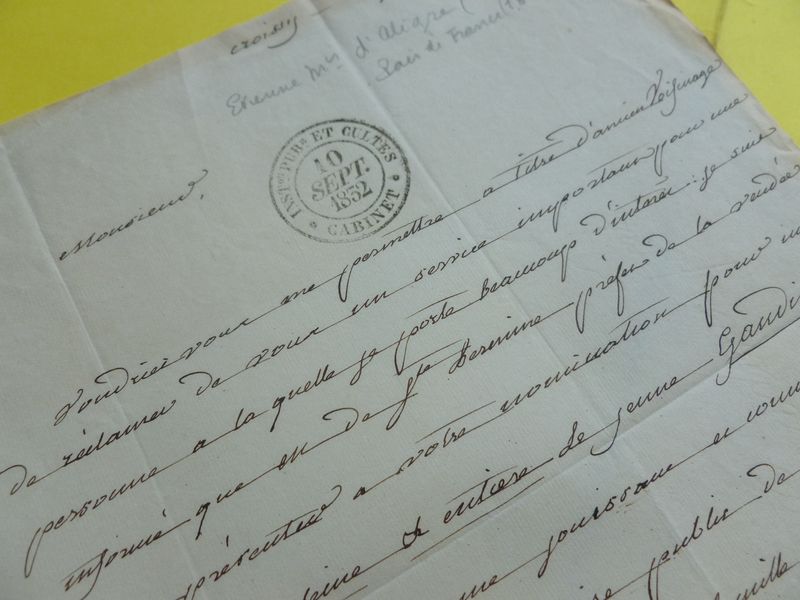 croissy
Etienne Mis d'Aligre (
Pair de France
INST.on PUB.e ET CULTES
10
SEPT.
1832
* CABINET *
Monsieur,
Voudriez vous me permettre a titre d'ancien Voisinage
de réclamer de vous un service important pour une
personne a la quelle je porte beaucoup d'intérêt : je suis
informé que M de Ste hermine préfet de la vendée
présenter a votre nomination pour
et entiere le jeune Gandi
une jouissance et
public de